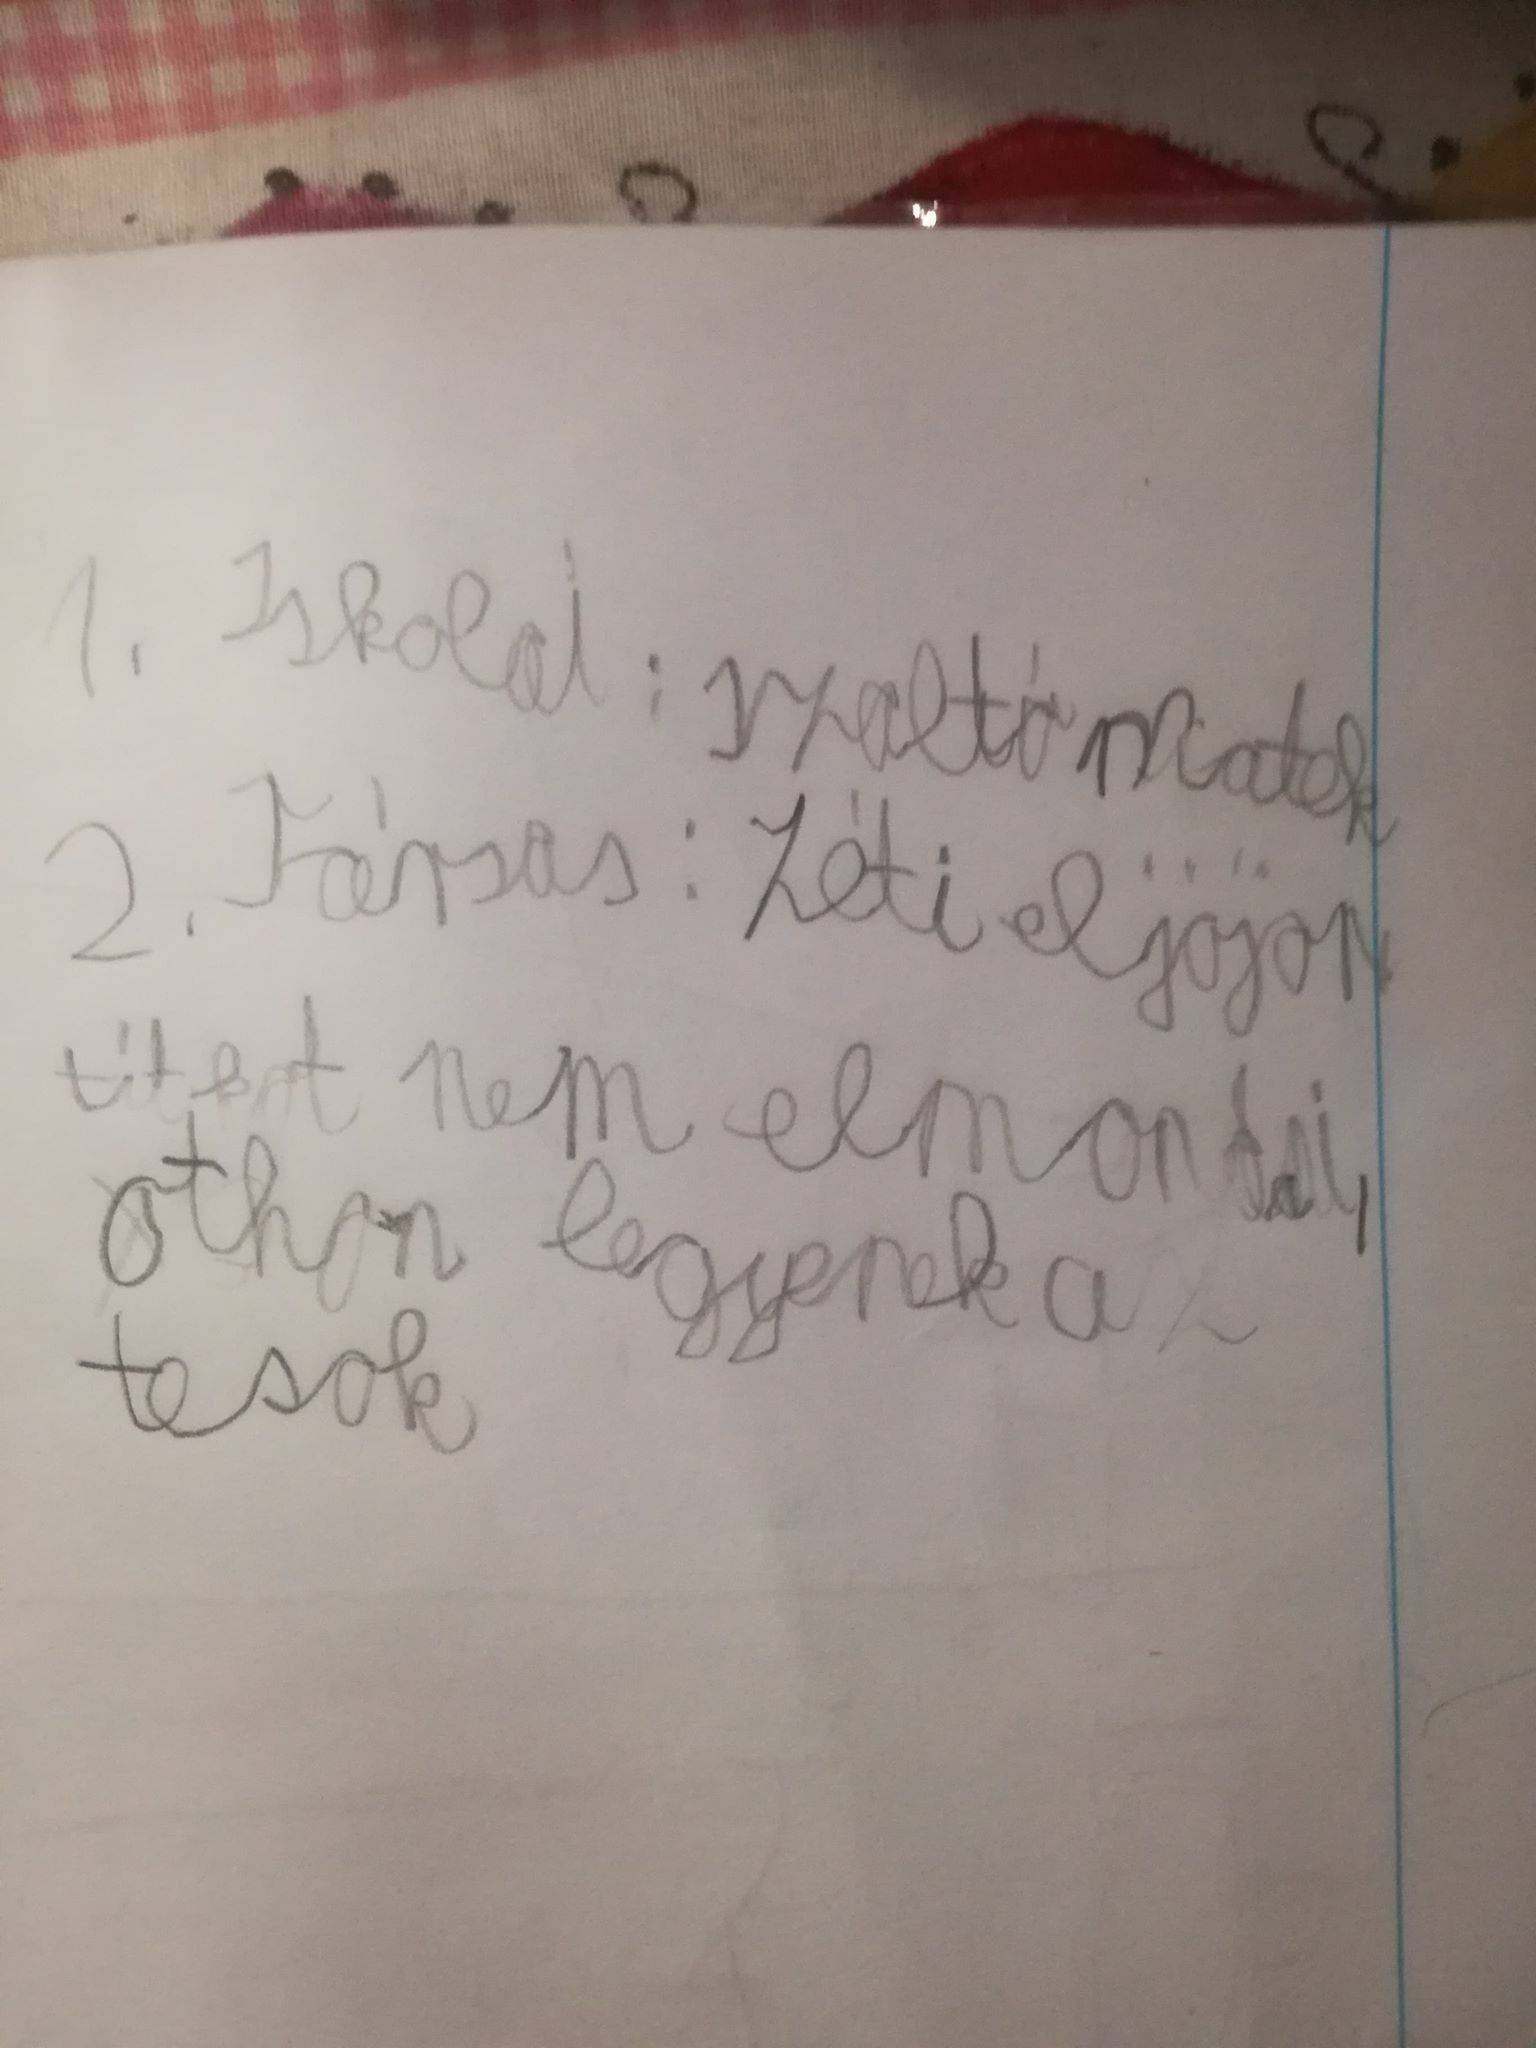 1. Iskolai: szaltó matek
2. Társas: Zéti eljöjön
titkot nem elmondai,
othon legyenek a
tesok